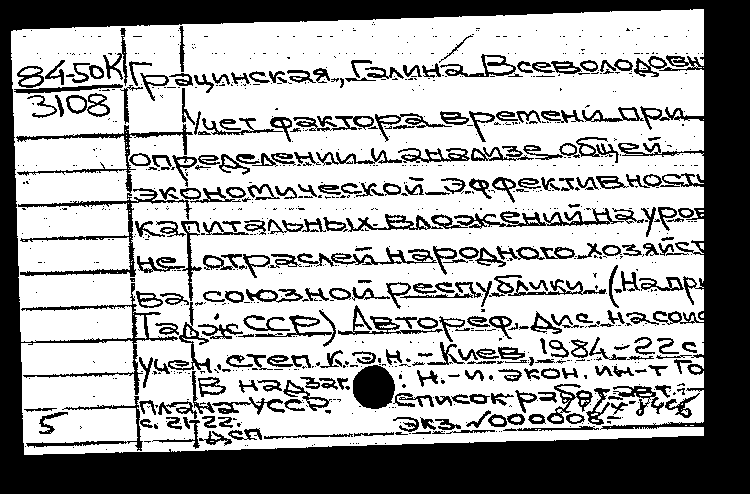 84-50К Грацинская, Галина Всеволодовн
3108
Учет фактора времени при
определении и анализе общей
экономической эффективность
капитальных вложений на уров
не отраслей народного хозяйст
ва союзной республики: (На при
ТаджССР) Автореф. дис. на соис
учен. степ. к.э.н. - Киев, 1984. - 22 с.
В надзаг.: Н.-и. экон. ин-т Го
плана УССР. Список работ авт.:
с. 21-22.
5 ДСП Экз. №000008.